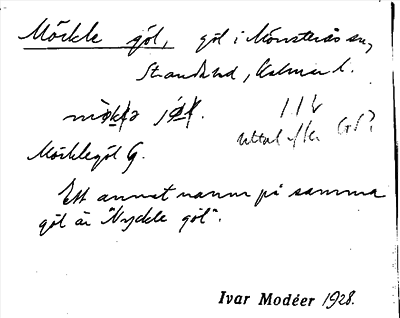 Möckle göl, göl i Mönsterås sn,
Stranda hd, Kalmar l.
uttal efter
Möcklegöl G.
Ett annat namn på samma
göl är "Nyckle göl".
Ivar Modéer 1928.